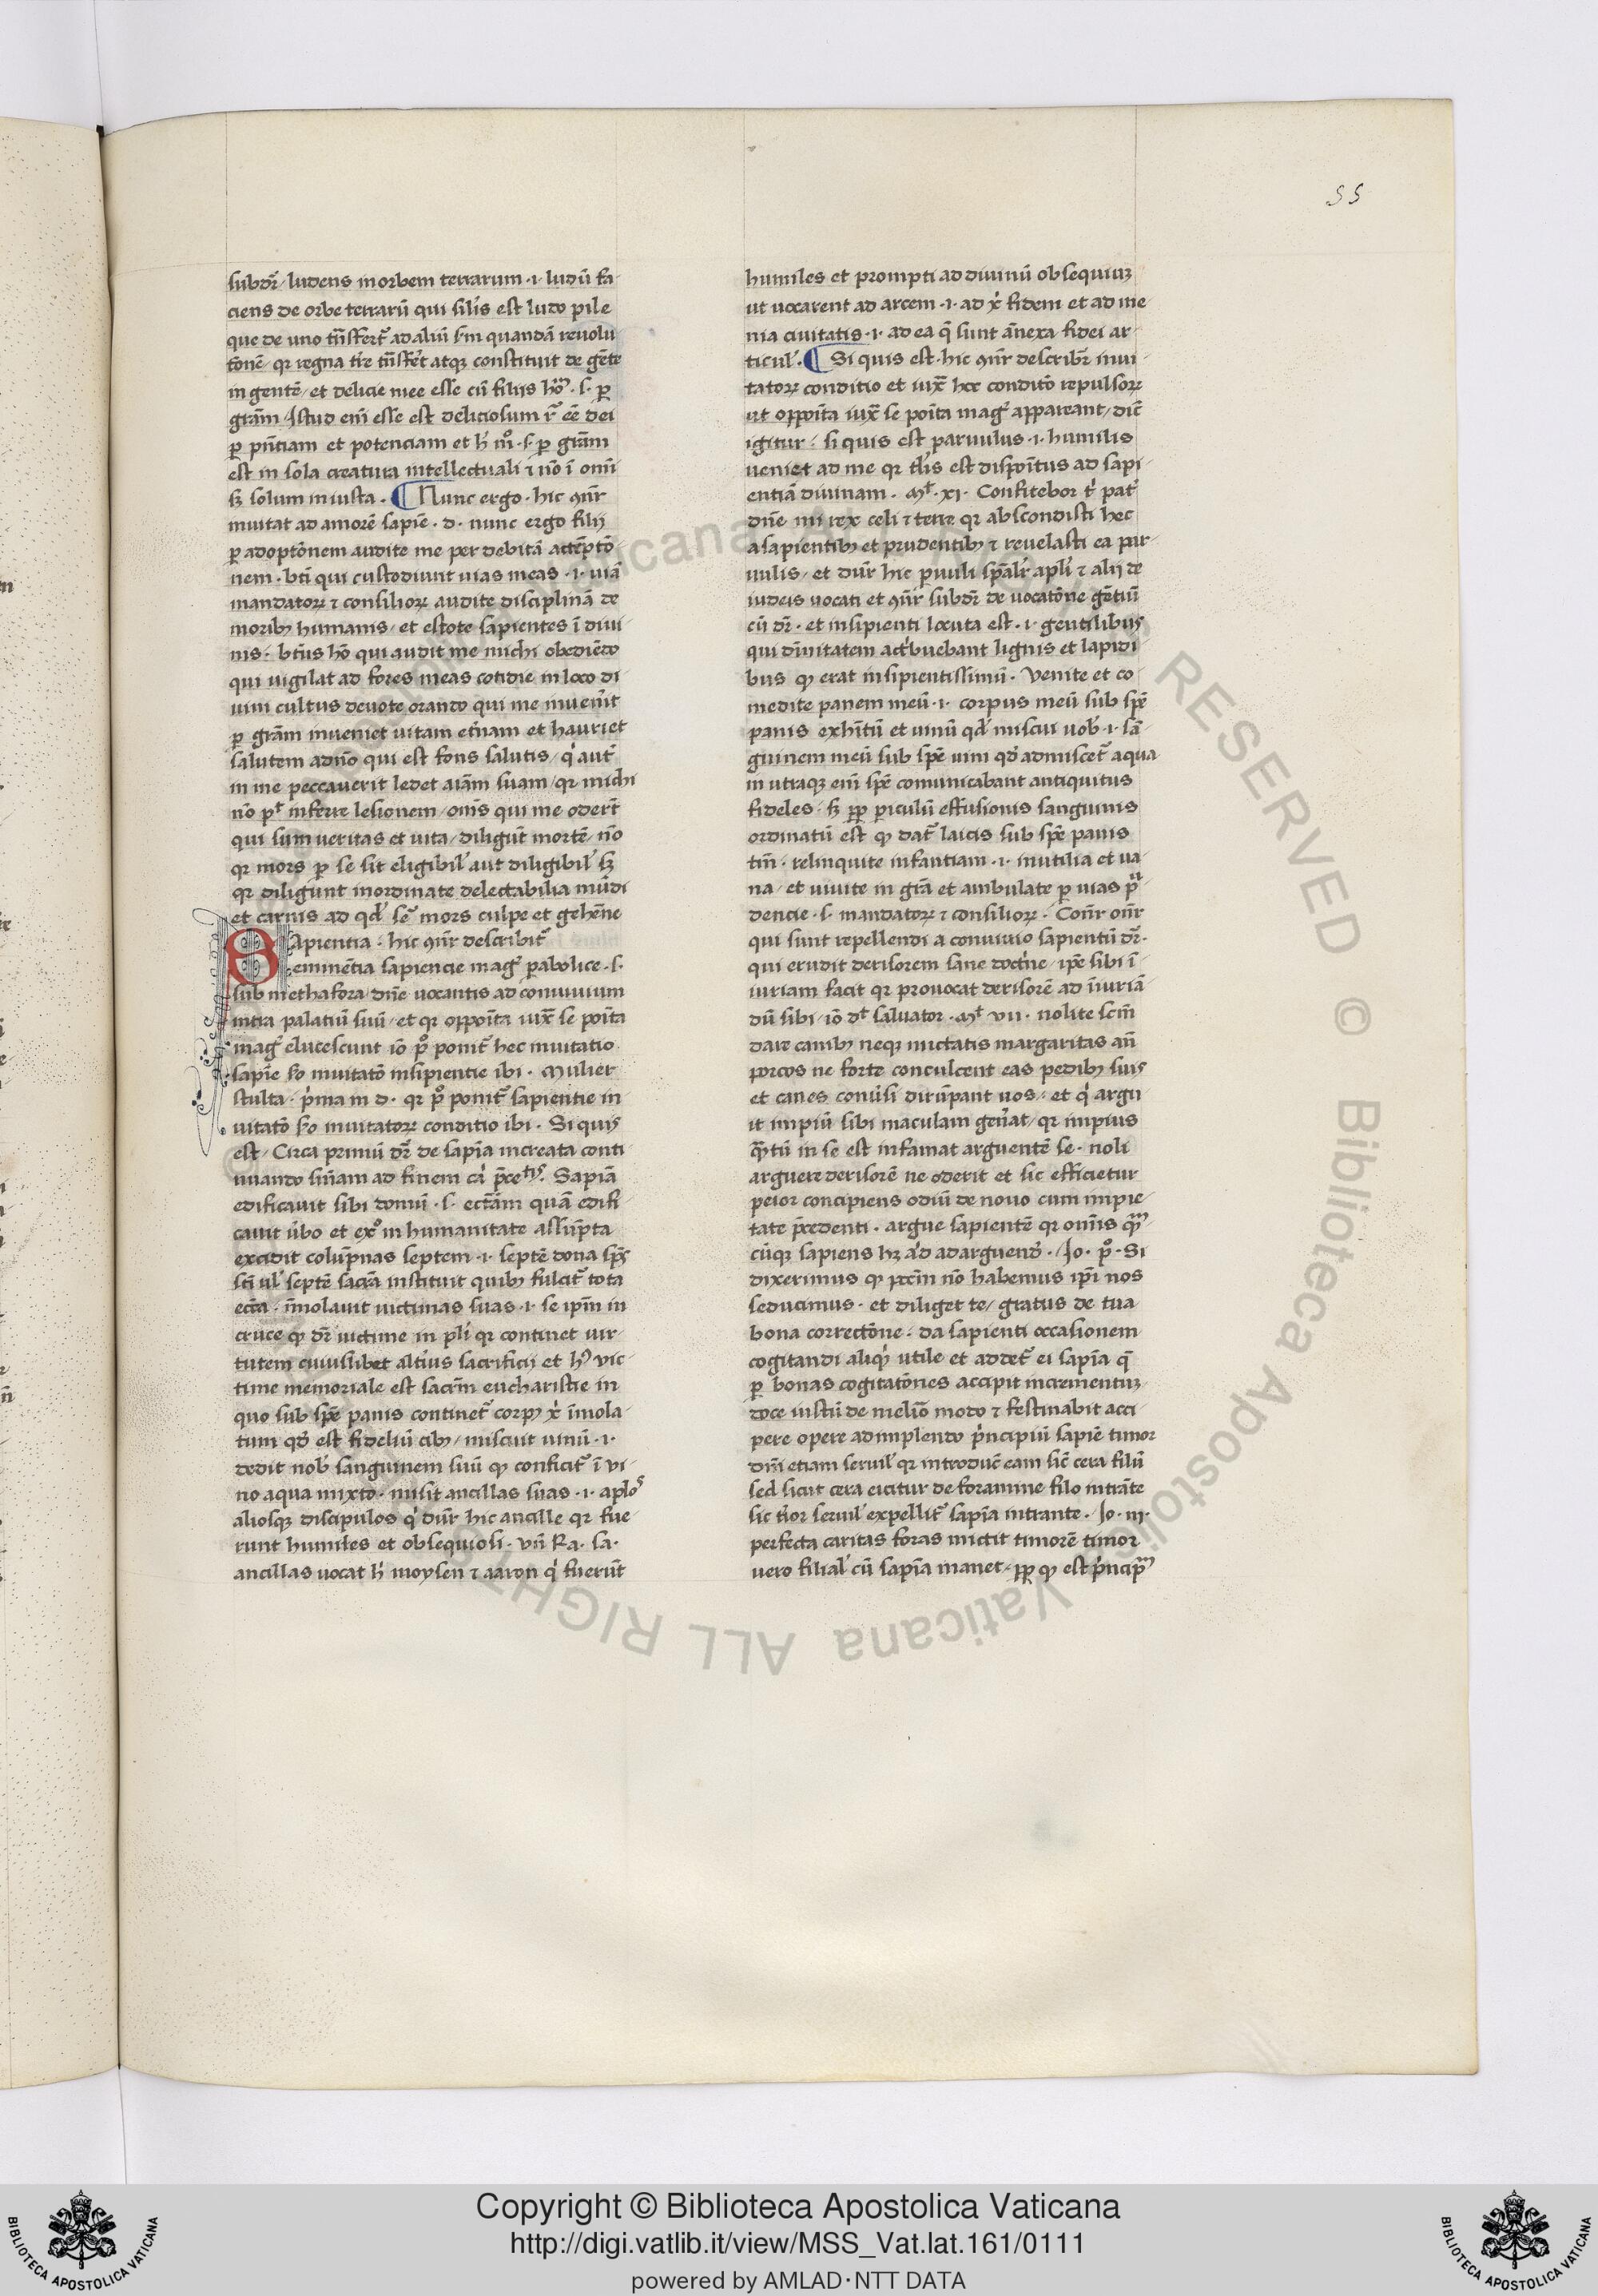 55
subdr̄ / ludens in orbem terrarum .i. ludū fa
ciens de orbe terrarū qui silis est ludo pile
que de uno trāsfert᷑ ad aliū sm quandā reuolu
tōnē / qr regna tr̄e trāsfert atqꝫ constituit de gēte
in gentē / et delicie mee esse cū filijs hōı̄ .s. ꝑ
grām / Istud eni esse est deliciosum r̄ ēē dei
ꝑ pn̄tiam et potenciam et h̄ mō .s. ꝑ grām
est in sola creatura intellectuali ⁊ nō ī omı̄
sꝫ solum in iusta . ¶ Nunc ergo . hic ɔn̄r
inuitat ad amorē sapiē . d . nunc ergo filij
ꝑ adoptōnem audite me per debitā attēptō
nem . bti qui custodiunt uias meas .i. uiā
mandatoꝝ ⁊ consilioꝝ audite disciplinā de
moribꝫ humanis / et estote sapientes ī diui
nis . btūs hō qui audit me michi obediēdo
qui uigilat ad fores meas cotidie in loco di
uini cultus deuote orando qui me inuenit
ꝑ grām inueniet uitam et̄nam et hauriet
salutem a dn̄o qui est fons salutis / qi aut᷑
in me peccauerit ledet aiām suam / qr michi
nō pt inferre lesionem / om̄s qui me oderūt
qui sum ueritas et uita / diligūt mortē / nō
qr mors ꝑ se sit eligibil' aut diligibil' sꝫ
qr diligunt inordinate delectabilia mūdi
et carnis ad qd' se᷑ mors culpe et gehēne
Sapientia . hic ɔn̄r describit᷑
eminētia sapiencie mag' ꝑabolice .s.
sub methafora dn̄e uocantis ad conuiuium
intra palatiū suū / et qr oppoīta iuxͣ se poīta
mag' elucescunt iō pͦ ponit᷑ hec inuitatio
sapiē so inuitatō insipientie ibi . Mulier
stulta . pima in d . qr pͦ ponit᷑ sapientie in
uitatō so inuitatoꝝ conditio ibi . Si quis
est / Circa primū dr̄ de sapīa increata conti
nuando sn̄iam ad finem ci p̄cetis. Sapiā
edificauit sibi domū .s. ecciām quā edifi
cauit ūbo et exo in humanitate assūpta
excidit colūpnas septem .i. septē dona sps̄
scī ul' septē sacrā instituit quibꝫ fulcit᷑ tota
eccia . īmolauit uictimas suas .i. se ipm̄ in
cruce qꝫ dr̄ uictime in pli qr continet uir
tutem cuiuslibet altius sacrificii et hꝰ uic
time memoriale est sacrm̄ eucharistie in
quo sub spē panis continet᷑ corpꝫ xi īmola
tum qd' est fideliū cibꝫ / miscuit uinū .i.
dedit nob' sanguinem suū qꝫ conficit᷑ ī ui
no aqua mixto . misit ancillas suas .i. aplos
aliosqꝫ discipulos qi dn̄r hic ancille qr fue
runt humiles et obsequiosi . Vn̄ Ra. Sa.
ancillas uocat h̄ moysen ⁊ aaron qi fuerūt
humiles et prompti ad diuinū obsequiuꝫ
ut uocarent ad arcem .i. ad xi fidem et ad me
nia ciuitatis .i. ad ea q̄ sunt ānexa fidei ar
ticul' . ¶ Si quis est . hic ɔn̄r describit᷑ inui
tatoꝝ conditio et iuxͣ hec conditō repulsoꝝ
ut oppoīta iuxͣ se poīta mag' appareant / dic̄
igitur . si quis est paruulus .i. humilis
ueniet ad me qr tl'is est dispoitus ad sapi
entiā diuinam . Mt . xi . Confitebor ti pat'
dn̄e mi rex celi ⁊ terre qr abscondisti hec
a sapientibꝫ et prudentibꝫ ⁊ reuelasti ea par
uulis / et dn̄r hic ꝑuuli sp̄alit' apli ⁊ alij de
iudeis uocati et ɔn̄r subdr̄ de uocatōne gētiū
cū dr̄ . et insipienti locuta est .i. gentilibus
qui diuītatem att'buebant lignis et lapidi
bus qꝫ erat insipientissimū . Venite et co
medite panem meū .i. corpus meū sub spē
panis exhitū et uinū qd' miscui uob' .i. sā
guinem meū sub spē uini qd' admiscet᷑ aqua
in utraqꝫ eni spē comunicabant antiquitus
fideles . sꝫ ꝓꝑ ꝑiculū effusionis sanguinis
ordinatū est qꝫ dat᷑ laicis sub spē panis
tm̄ . relinquite infantiam .i. inutilia et ua
na / et uiuite in grā et ambulate ꝑ uias pru
dencie .s. mandatoꝝ ⁊ consilioꝝ . Con̄r on̄r
qui sunt repellendi a conuiuio sapientū dr̄ .
qui erudit derisorem sane doct'ne / ipē sibi ī
iuriam facit qr prouocat derisorē ad īiuriā
dū sibi / iō dt saluator . Mt vii . nolite scm̄
dare canibꝫ neqꝫ mictatis margaritas an̄
porcos ne forte conculcent eas pedibꝫ suis
et canes conu'si dirūpant uos / et qi argu
it impiū sibi maculam gen'at / qr impius
qͣtū in se est infamat arguentē se . noli
arguere derisorē ne oderit et sic efficietur
peior concipiens odiū de nouo cum impie
tate p̄cedenti . argue sapientē qr om̄is qͣ
cūqꝫ sapiens hꝫ aid ad arguend' . Io . pͦ . Si
dixerimus qꝫ pctm̄ nō habemus ipi nos
seducimus . et diliget te / gratus de tua
bona correctōne . da sapienti occasionem
cogitandi aliqd utile et addet᷑ ei sapīa q̄
ꝑ bonas cogitatōnes accipit incrementuꝫ
doce iustū de meliō modo ⁊ festinabit acci
pere opere adimplendo pincipiū sapiē timor
dn̄i etiam seruil' qr introduc̄ eam sic̄ cera filū
sed sicut cera eicitur de foramine filo intrāte
sic t'or seruil' expellit᷑ sapīa intrante . Io . iiij .
perfecta caritas foras mictit timorē timor
uero filial' cū sapīa manet . ꝓꝑ qꝫ est pincipm